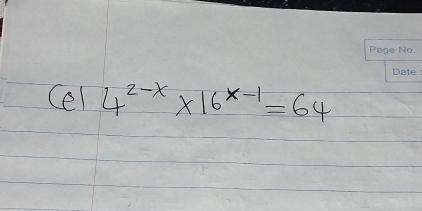 Page No.
Date
(e) 4^{2-x} x 16^{x-1} = 64